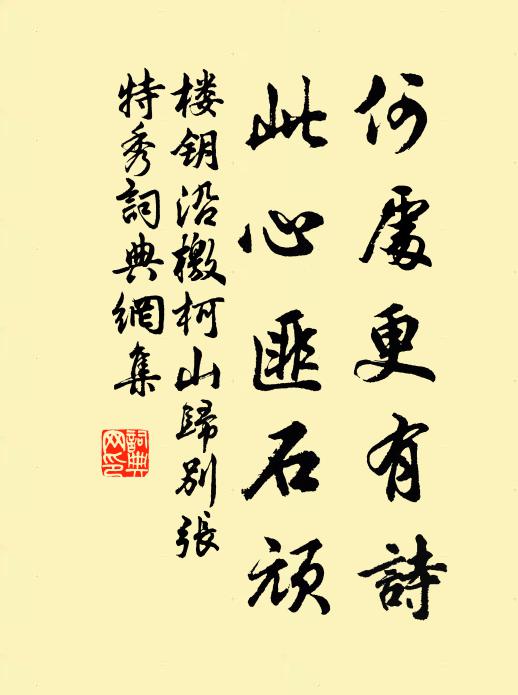 何處更有詩
此心匪石頑
楼钥沿檄柯山歸别張
特秀詞典網集
詞典网印